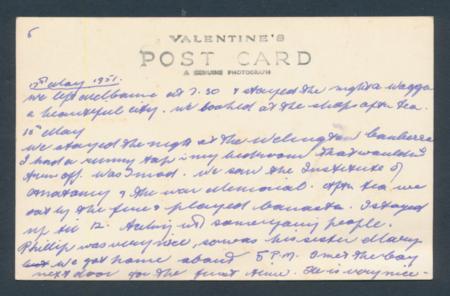 5
VALENTINE'S
POST CARD
A GENUINE PHOTOGRAPH
May 1951.
We left Melbourne at 7.30 & stayed the night a Wagga
a beautiful city. We looked at the shops after tea.
15th May
We stayed the night at the Wellington Canberra
I had a runny tap in my bedroom that wouldn't
turn off. Was mad. We saw the Institute of
Anatomy & the War Memorial. After tea we
sat by the fire & played Canasta. I stayed
up till 12. talking with some young people.
Phillip was very nice, so was his sister Mary
We got home about 5 P.M. & met the boy
next door for the first time. He is very nice.